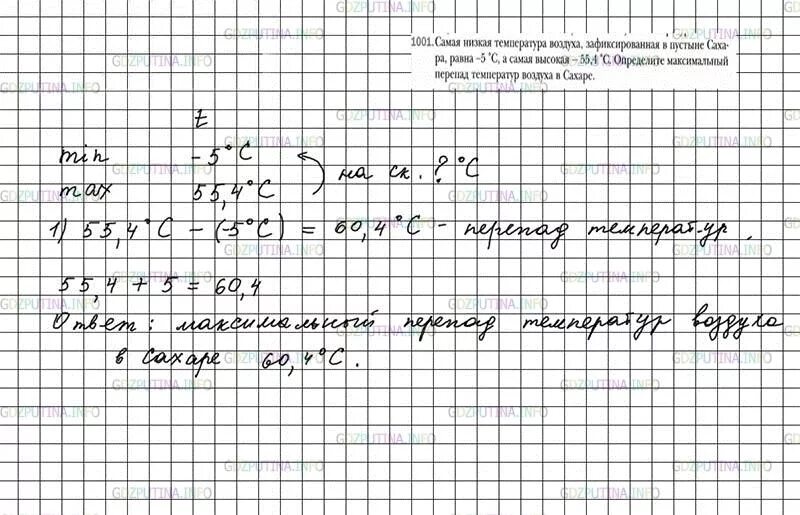 1001. Самая низкая температура воздуха, зафиксированная в пустыне Саха-
ра, равна –5 °С, а самая высокая – 55,4 °С. Определите максимальный
перепад температур воздуха в Сахаре.
t
min -5°C
на ск. ? °C
max 55,4°C
1) 55,4°C - (-5°C) = 60,4°C - перепад температур.
55,4 + 5 = 60,4
Ответ: максимальный перепад температур воздуха
в Сахаре 60,4°C.
GDZPUTINA.INFO